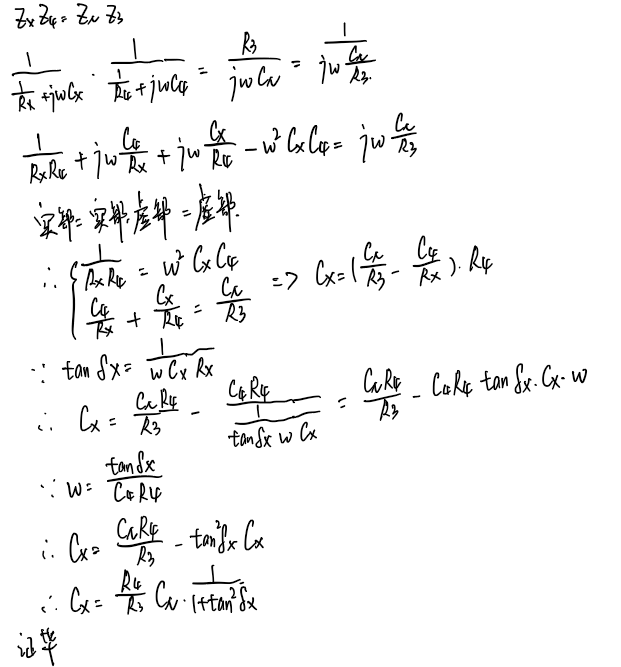 Zx Z4 = ZN Z3
1/(1/Rx + jωCx) · 1/(1/R4 + jωC4) = R3/(jωCN) = 1/(jω CN/R3)
1/(RxR4) + jω C4/Rx + jω Cx/R4 - ω² CxC4 = jω CN/R3
实部=实部,虚部=虚部.
∴ { 1/(RxR4) = ω² CxC4
C4/Rx + Cx/R4 = CN/R3 => Cx = (CN/R3 - C4/Rx)·R4
∵ tanδx = 1/(ωCxRx)
∴ Cx = CNR4/R3 - C4R4/(1/(tanδx ω Cx)) = CNR4/R3 - C4R4 tanδx·Cx·ω
∵ ω = tanδx/(C4R4)
∴ Cx = CNR4/R3 - tan²δx Cx
∴ Cx = R4/R3 CN · 1/(1+tan²δx)
证毕